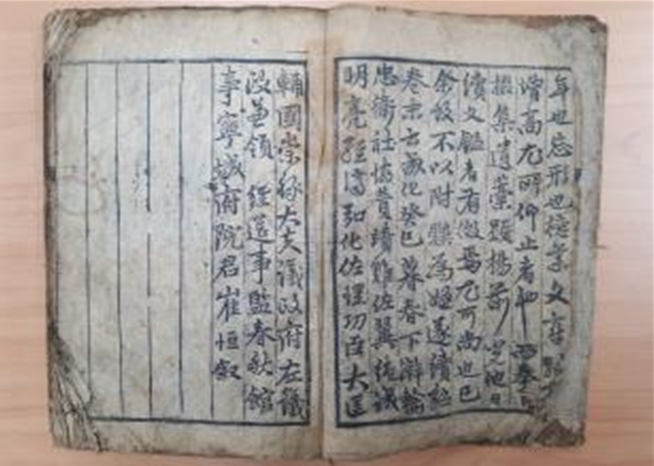 年世忘形也德業文章
增高尤所仰止者也
掇集遺藁顯揚前光他日
續文鑑者有徵焉尤可尚也已
余故不以附驥爲嫌遂續題
卷末云成化癸巳暮春下澣輸
忠衛社協贊靖難佐翼純誠
明亮經濟弘化佐理功臣大匡
輔國崇祿大夫議政府左議
政兼領 經筵事監春秋館
事寧城府院君崔恒叙